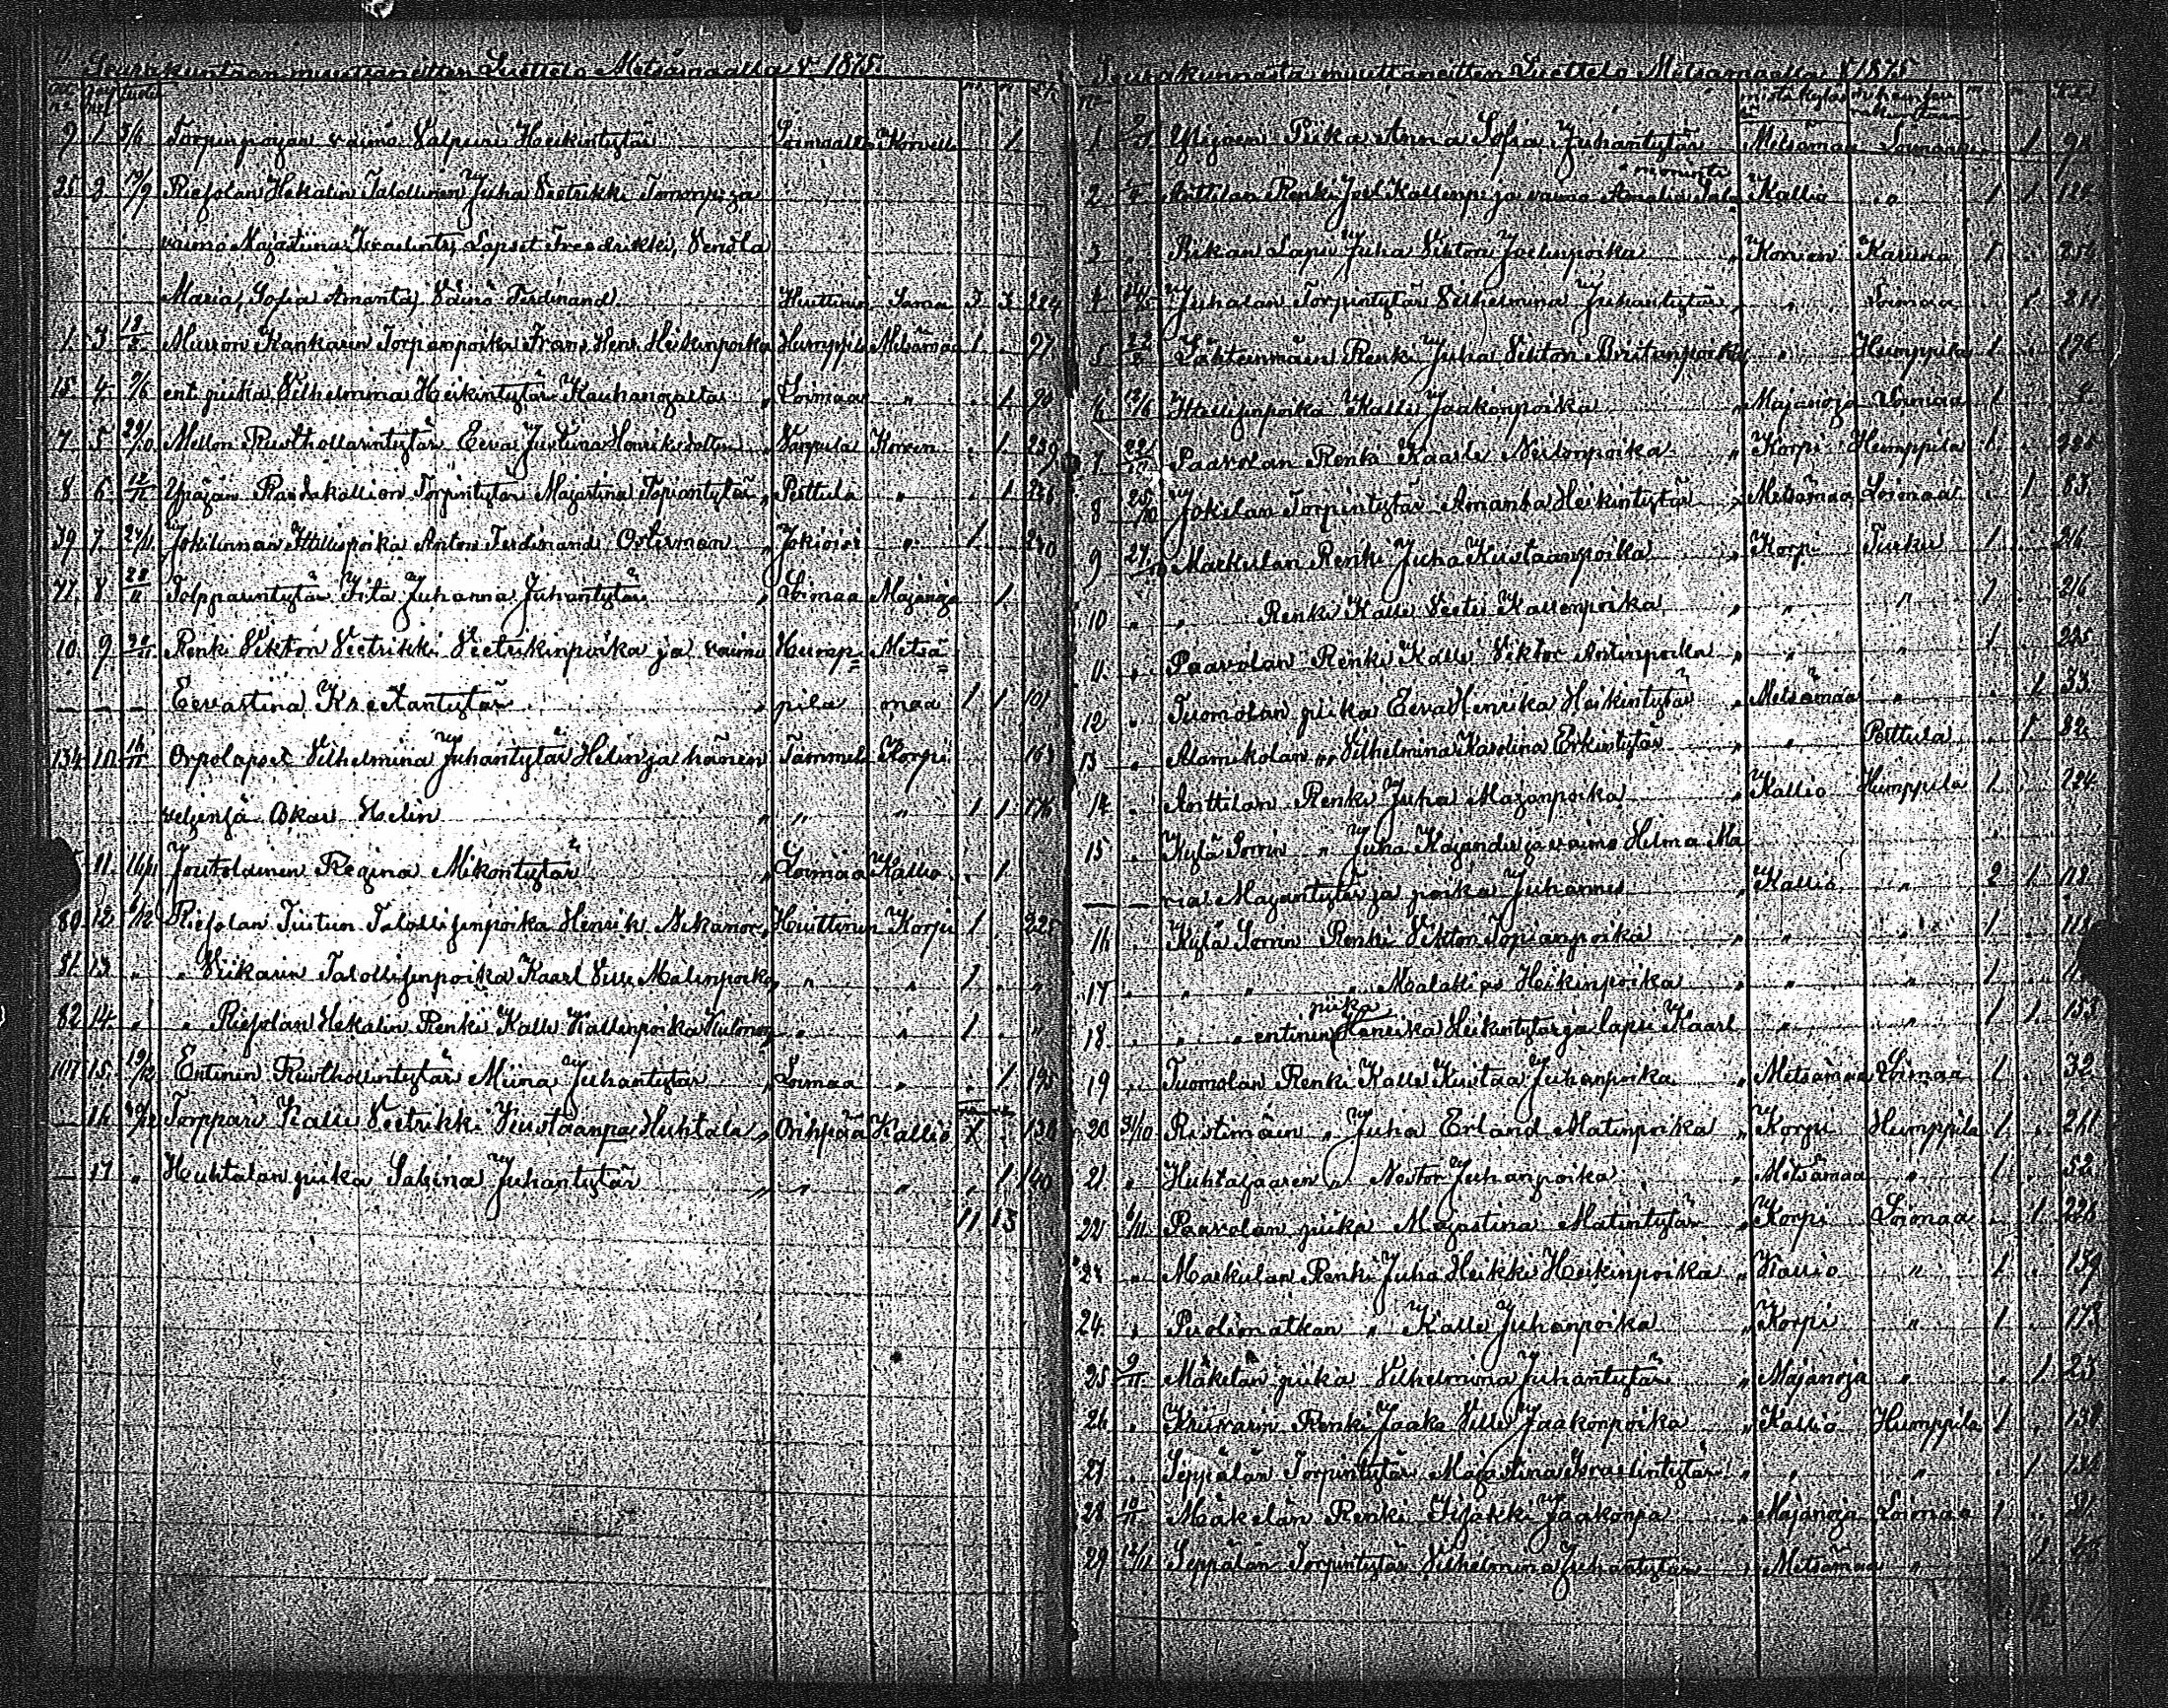 Seurakuntaan muuttaneitten Luettelo Metsämaalla v. 1875.
9 1 5/1 Torpinpojan vaimo Valpuri Heikintytär Loimaalta Korvelle 1
25 2 Riesolan Hekalin Talollinen Juha Veetrikki Tomonp: ja
vaimo Majastiina Israelint:, Lapset Freedrikki, Vendla
Maria, Sofia Amanta, Väinö Ferdinand. Huittinen Sama 3 3 224
1 3 Murron Kankarin Torpanpoika Frans Henr. Heikinpoika Humppila Metsämaa 1 . 97
15 4 ent. piika Vilhelmina Heikintytär Kauhanojalta " Loimaa " . 1 70
7 5 22/10 Mellon Rusthollarintytär Eeva Justiina Henriksdotter " Vampula Korven . 1 239
8 6 12/11 Ypäjän Raadskallion Torpintytär Majastina Topiantytär " Perttula " . 1 236
39 7 24/11 Jokilinnan Itsellispoika Anton Ferdinand Österman " Jokioisi " 1 . 240
77 8 28/11 Tolpparintytär Iita Juhanna Juhantytär " Loimaa Majanoja . 1
10 9 Renki Viktor Veetrikki Veetrikinpoika ja vaimo Hump= Metsä=
Eevastina Kreetantytär " pila maa 1 1 101
134 10 16/11 Orpolapset Vilhelmina Juhantytär Helin ja hänen Tammela Korpi 163
veljensä Oskar Helin " " " 1 1 176
11 16/11 Joutolainen Regina Mikontytär " Loimaa Kallio . 1
80 12 6/12 Riesolan Tuitun Talollisenpoika Henrik Nikanor " Huittinen Korpi 1 . 225
81 13 " " Viikarin Talollisenpoika Kaarl Ville Malinpoika " " " 1 . "
82 14 " " Riesolan Hekalin Renki Kalle Kallenpoika Kulonoja " " " 1 . "
107 15 19/12 Entinen Rusthollintytär Miina Juhantytär " Loimaa " . 1 195
16 Torppari Kalle Veetrikki Kustaanpa Huhtala " Oripää Kallio 138
17 " Huhtalan piika Sabina Juhantytär " " " . 1 140
11 13
Seurakunnasta muuttaneitten Luettelo Metsämaalla v. 1875
mistä kylästä mihin seurakuntaan
1 Ypäjoen Piika Anna Sofia Juhantytär " Metsämaa Loimaalle . 1 98
2 Anttilan Renki Joel Kallenp: ja vaimo Amalia " Kallio " 1 1 125
3 " Rikan Lapsi Juha Viktor Joelinpoika " Korven Karuna 1 .
4 Juhalan Torpintytär Vilhelmina Juhantytär " " Loimaa . 1 211
5 Lähteenmäen Renki Juha Viktor Britanpoika " " Humppila 1 . 176
6 12/6 Itsellisenpoika Kalle Jaakonpoika " Majanoja Loimaa 1 .
7 22/10 Paavolan Renki Kaarle Neitonpoika " Korpi Humppila 1 . 225
8 25/10 Jokilan Torpintytär Amanta Heikintytär " Metsämaa Loimaa . 1 83
9 27/10 Markulan Renki Juha Kustaanpoika " Korpi Turku 1 . 216
10 " " Renki Kalle Veeti Kallenpoika " " " 1 . 216
11 " Paavolan Renki Kalle Viktor Antinpoika " " " 1 . 225
12 " Tuomolan piika Eeva Henrika Heikintytär " Metsämaa " . 1 33
13 " Alamikolan " Vilhelmina Karolina Erkintytär " " Perttula . 1 82
14 " Anttilan Renki Juha Majanpoika " Kallio Humppila 1 . 124
15 " Kylä Sorrin " Juha Kajander ja vaimo Helma Ma
ria Majantytär ja poika Juhannes " Kallio " 2 1 118
16 " Kylä Sorrin Renki Viktor Topianpoika " " " 1 . 118
17 " " " " Malakias Heikinpoika " " " 1 .
18 " " " entinen piika Henrika Heikintytär ja lapsi Kaarl " " 1 1 153
19 " Tuomolan Renki Kalle Kustaa Juhanpoika " Metsämaa Loimaa 1 . 32
20 31/10 Ristimäen " Juha Erland Matinpoika " Korpi Humppila 1 . 211
21 " Huhtajaaren " Nestor Juhanpoika " Metsämaa " 1 . 52
22 6/11 Paavolan piika Majastina Matintytär " Korpi Loimaa . 1 226
23 " Markulan Renki Juha Heikki Heikinpoika " Kallio " 1 . 159
24 " Puolimatkan " Kalle Juhanpoika " Korpi " 1 . 173
25 9/11 Mäkelän piika Vilhelmina Juhantytär " Majanoja " . 1 23
26 " Kriivarin Renki Jaako Ville Jaakonpoika " Kallio Humppila 1 . 138
27 " Seppälän Torpintytär Majastina Israelintytär " " " . 1
28 10/11 Mäkelän Renki Iisakki Jaakonpa " Majanoja Loimaa 1 . 21
29 12/11 Seppälän Torpintytär Vilhelmina Juhantytär " Metsämaa " 1